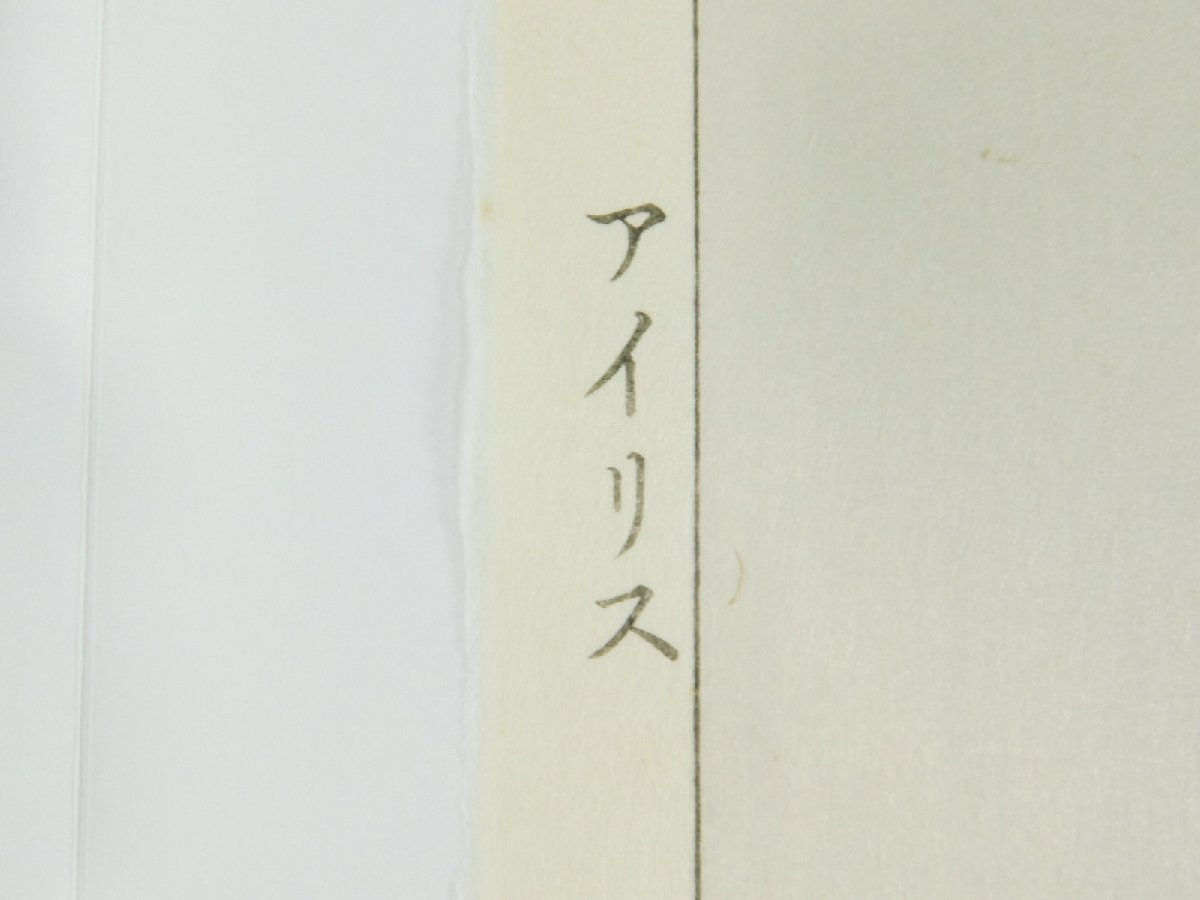 アイリス